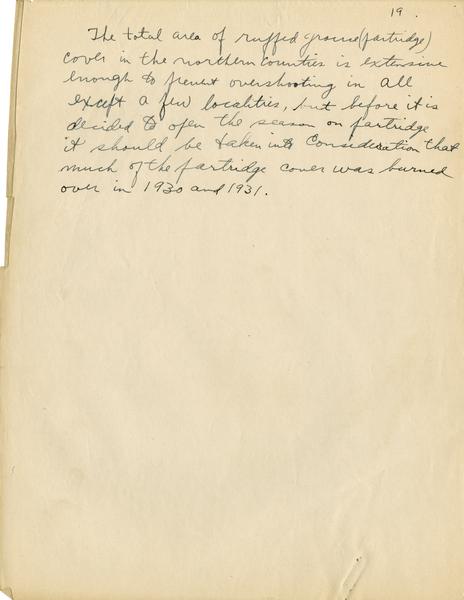 19.
The total area of ruffed grouse (partridge)
cover in the northern counties is extensive
enough to prevent overshooting in all
except a few localities, but before it is
decided to open the season on partridge
it should be taken into consideration that
much of the partridge cover was burned
over in 1930 and 1931.